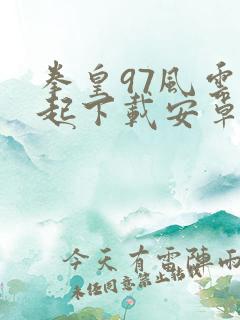 拳皇97風雲
起下載安卓
今天有雷陣雨
未经同意禁止转载